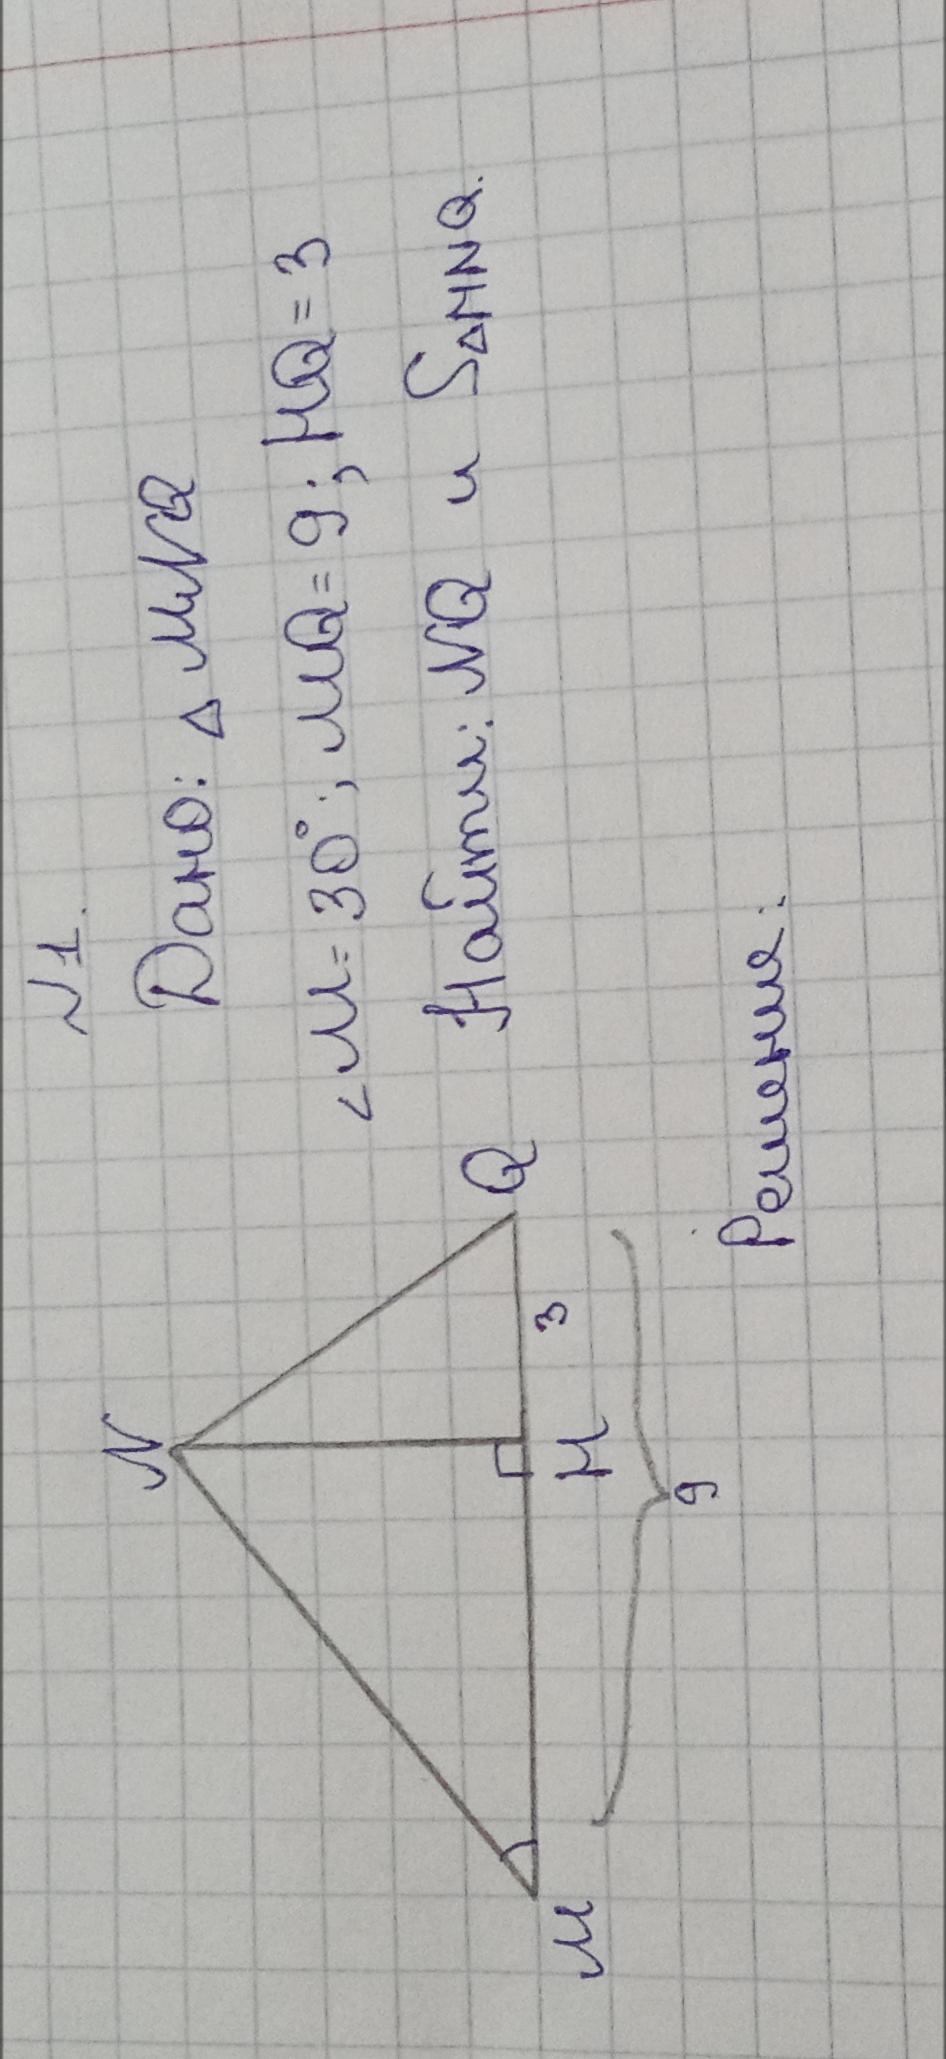 №1.
Дано: △ MNQ
<M=30°; MQ=9; HQ=3
Найти: NQ и S△HNQ.
N
Q
M
H
3
9
Решение: